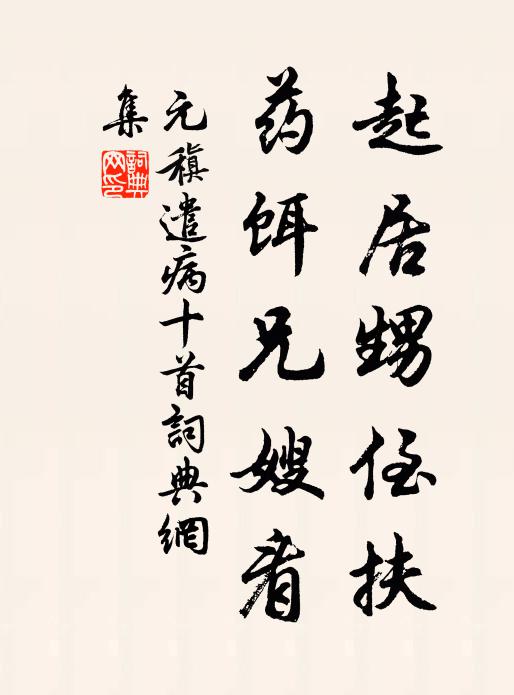 起居甥侄扶
药饵兄嫂看
元稹遣病十首詞典網
集
詞典网印